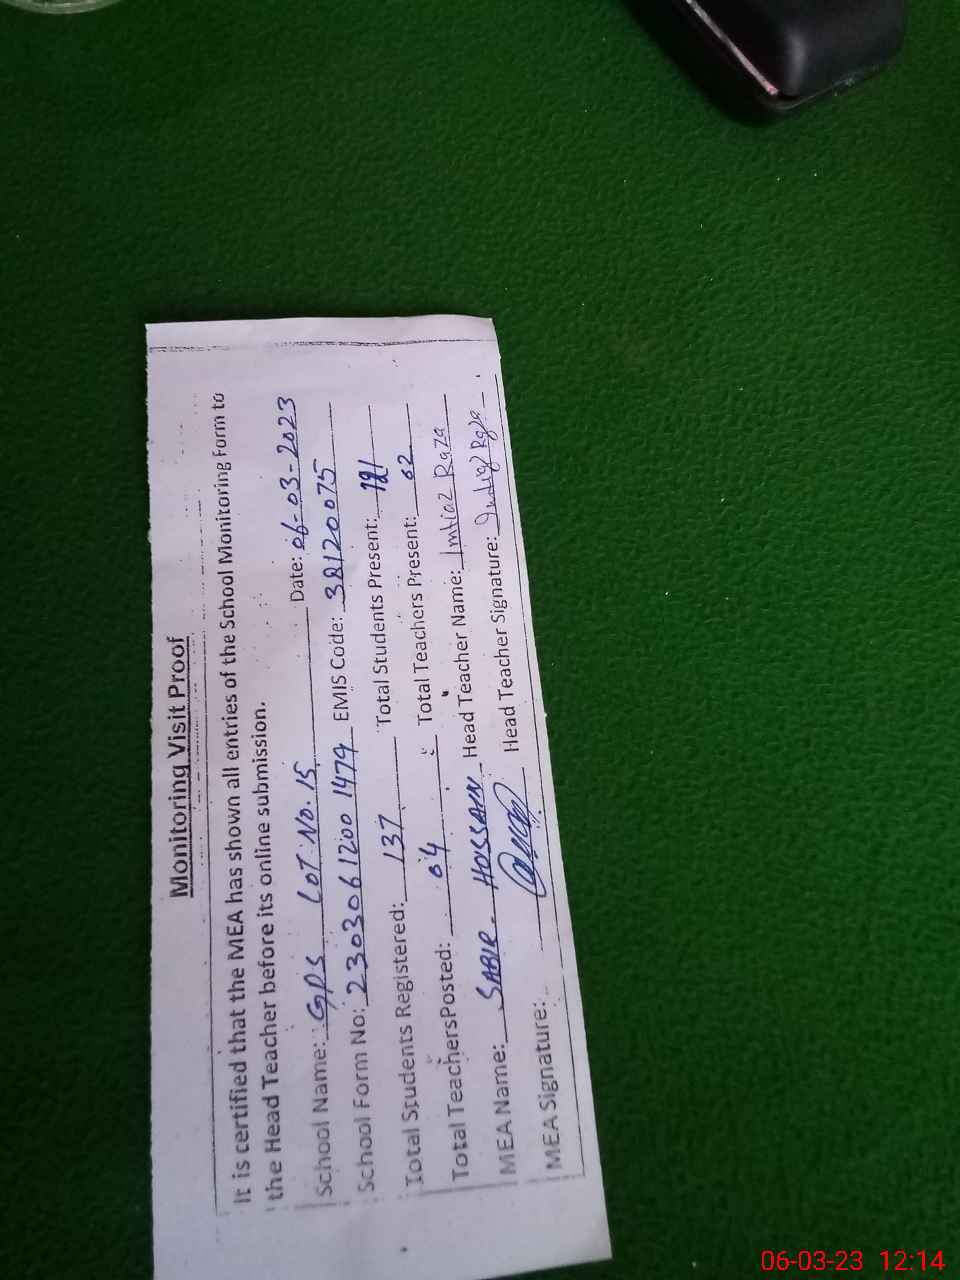 Monitoring Visit Proof
It is certified that the MEA has shown all entries of the School Monitoring Form to
the Head Teacher before its online submission.
School Name: GPS LOT NO. 15 Date: 06-03-2023
School Form No: 230306 1200 1479 EMIS Code: 38120075
Total Students Registered: 137 Total Students Present: 121
Total TeachersPosted: 04 Total Teachers Present: 02
MEA Name: SABIR HOSSAIN Head Teacher Name: Imtiaz Raza
MEA Signature: Head Teacher Signature:
06-03-23 12:14